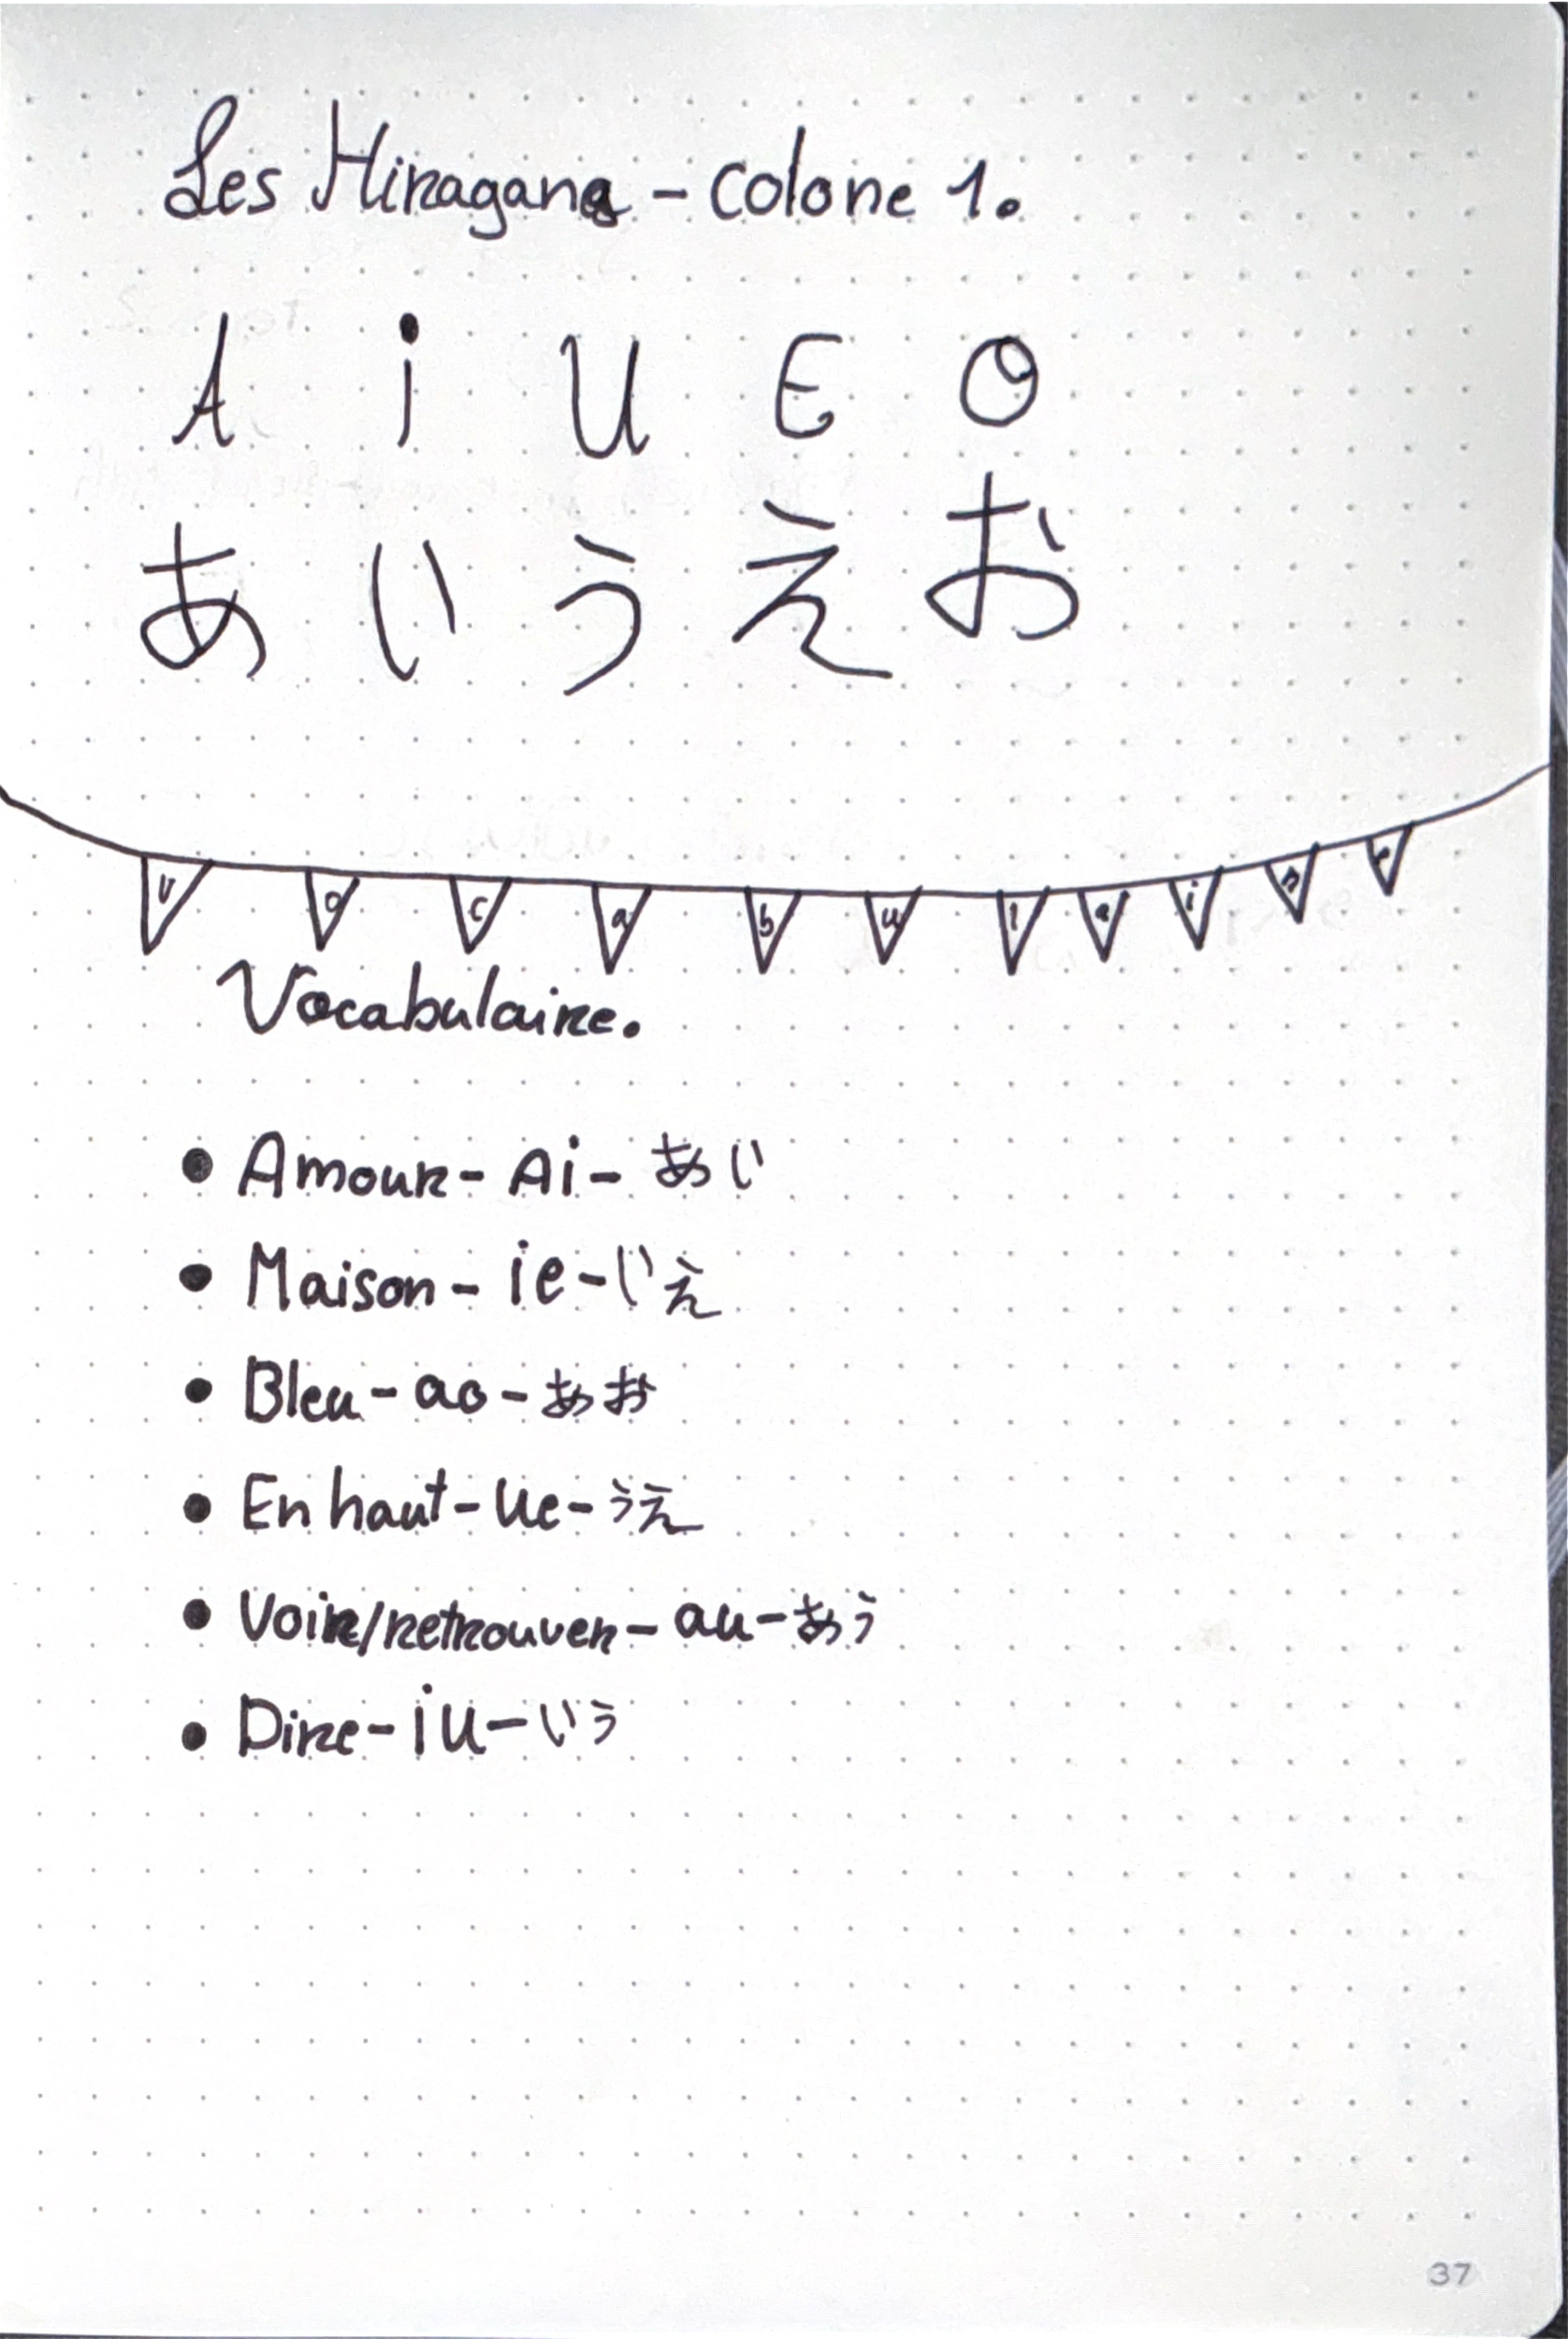 Les Hiragana - colone 1.
A i U E O
あ い う え お
v o c a b u l a i r e
Vocabulaire.
• Amour - Ai - あい
• Maison - ie - いえ
• Bleu - ao - あお
• En haut - ue - うえ
• Voir/retrouver - au - あう
• Dire - iu - いう
37